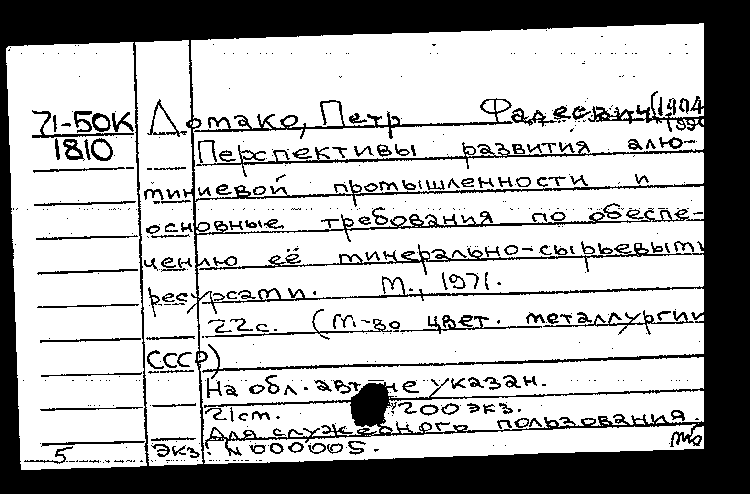 71-50К Ломако, Петр Фадеевич (1904
1990
1810 Перспективы развития алю-
миниевой промышленности и
основные требования по обеспе-
чению её минерально-сырьевыми
ресурсами. М., 1971.
22с. (М-во цвет. металлургии
СССР)
На обл. авт. не указан.
21см. 200 экз.
Для служебного пользования.
5 экз. N 000005.